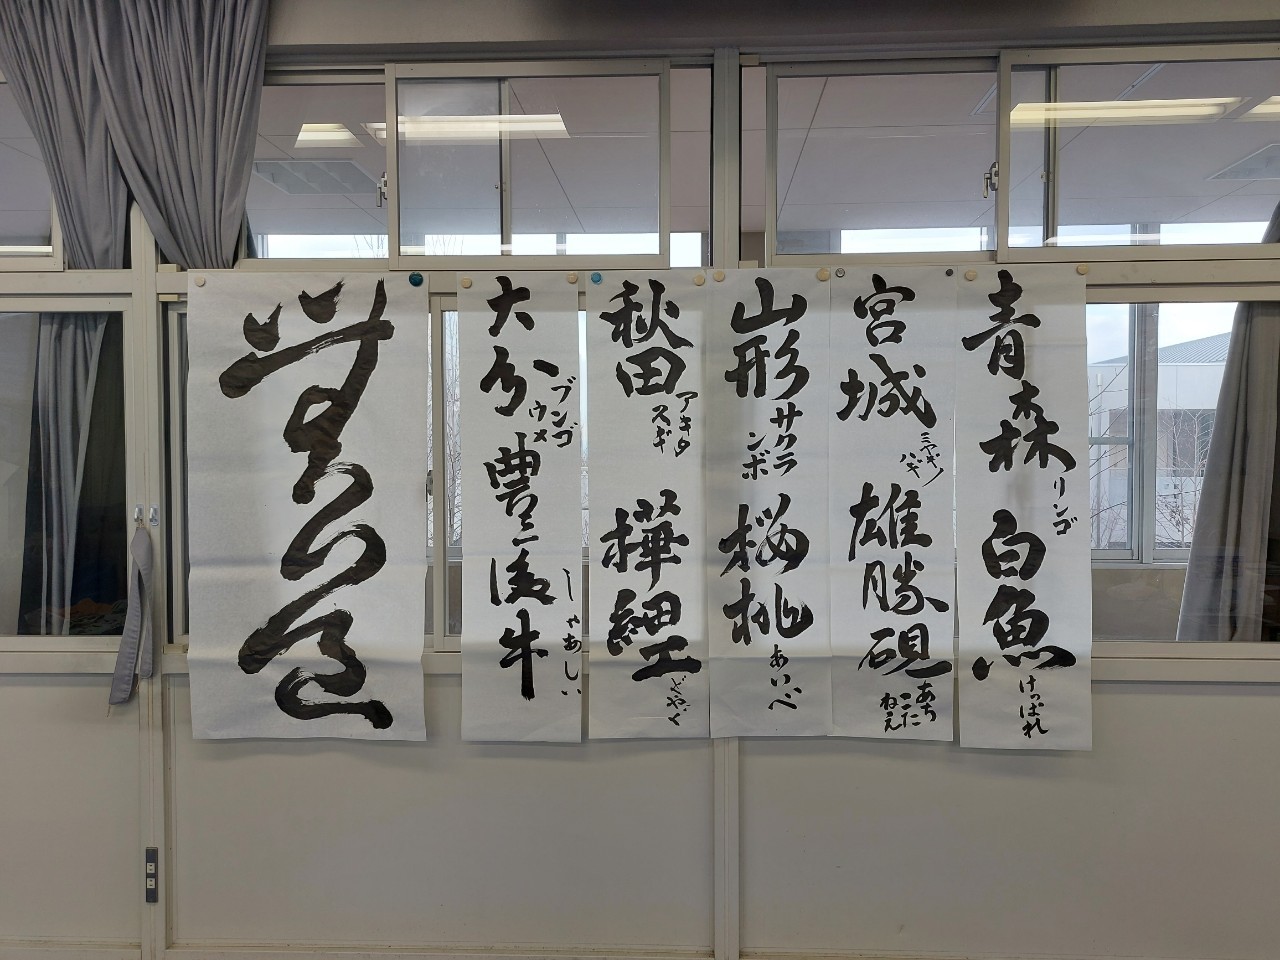 青森
リンゴ
白魚
けっぱれ
宮城
ミヤギノ
ハギ
雄勝硯
あち
こた
ねえ
山形
サクラ
ンボ
桜桃
あいべ
秋田
アキタ
スギ
樺細工
どやぐ
大分
ブンゴ
ウメ
豊後牛
しゃあしい